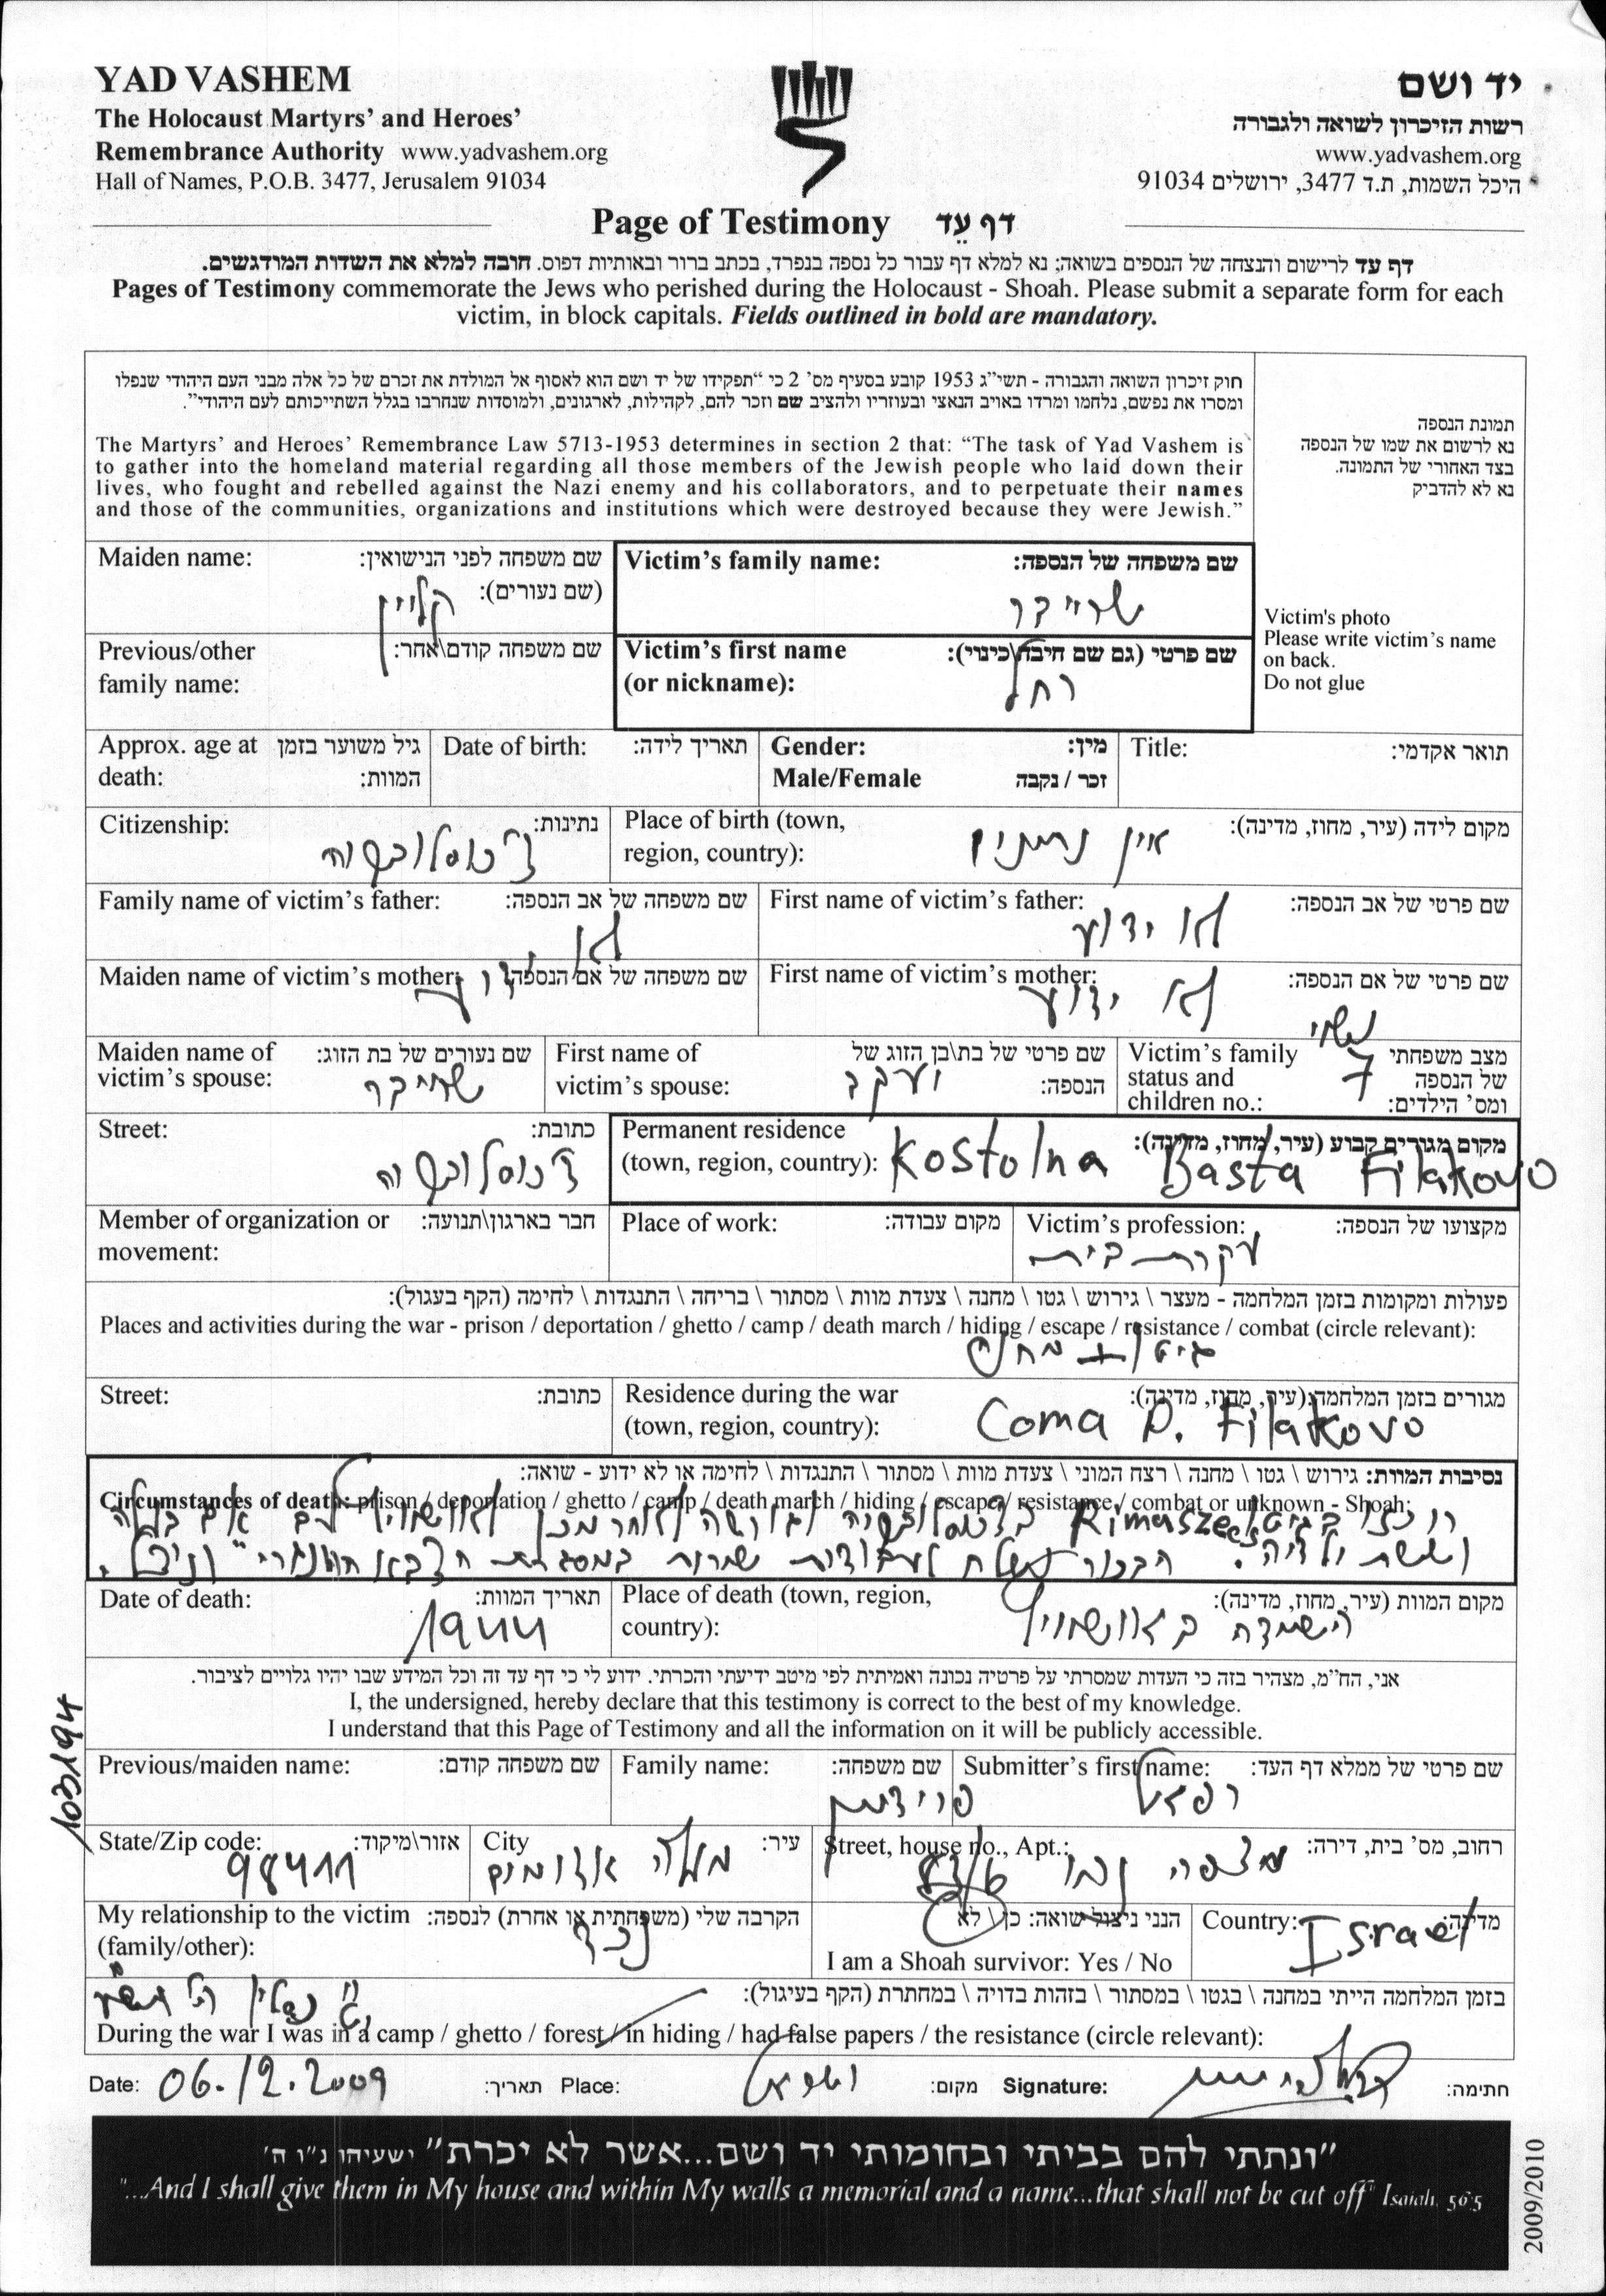 YAD VASHEM
The Holocaust Martyrs' and Heroes'
Remembrance Authority www.yadvashem.org
Hall of Names, P.O.B. 3477, Jerusalem 91034
יד ושם
רשות הזיכרון לשואה ולגבורה
www.yadvashem.org
היכל השמות, ת.ד 3477, ירושלים 91034
Page of Testimony דף עֵד
דף עד לרישום והנצחה של הנספים בשואה; נא למלא דף עבור כל נספה בנפרד, בכתב ברור ובאותיות דפוס. חובה למלא את השדות המודגשים.
Pages of Testimony commemorate the Jews who perished during the Holocaust - Shoah. Please submit a separate form for each
victim, in block capitals. Fields outlined in bold are mandatory.
חוק זיכרון השואה והגבורה - תשי"ג 1953 קובע בסעיף מס' 2 כי "תפקידו של יד ושם הוא לאסוף אל המולדת את זכרם של כל אלה מבני העם היהודי שנפלו
ומסרו את נפשם, נלחמו ומרדו באויב הנאצי ובעוזריו ולהציב שם וזכר להם, לקהילות, לארגונים, ולמוסדות שנחרבו בגלל השתייכותם לעם היהודי".
The Martyrs' and Heroes' Remembrance Law 5713-1953 determines in section 2 that: "The task of Yad Vashem is
to gather into the homeland material regarding all those members of the Jewish people who laid down their
lives, who fought and rebelled against the Nazi enemy and his collaborators, and to perpetuate their names
and those of the communities, organizations and institutions which were destroyed because they were Jewish."
תמונת הנספה
נא לרשום את שמו של הנספה
בצד האחורי של התמונה.
נא לא להדביק
Victim's photo
Please write victim's name
on back.
Do not glue
Maiden name: שם משפחה לפני הנישואין:
(שם נעורים): קליין
Victim's family name: שם משפחה של הנספה:
שרייבר
Previous/other שם משפחה קודם\אחר:
family name:
Victim's first name שם פרטי (גם שם חיבה\כינוי):
(or nickname): רחל
Approx. age at גיל משוער בזמן
death: המוות:
Date of birth: תאריך לידה:
Gender: מין:
Male/Female זכר / נקבה
Title: תואר אקדמי:
Citizenship: נתינות:
צ'כוסלובקיה
Place of birth (town, מקום לידה (עיר, מחוז, מדינה):
region, country): אין נתונים
Family name of victim's father: שם משפחה של אב הנספה:
לא
First name of victim's father: שם פרטי של אב הנספה:
לא ידוע
Maiden name of victim's mother: שם משפחה של אם הנספה:
ידוע
First name of victim's mother: שם פרטי של אם הנספה:
לא ידוע
Maiden name of שם נעורים של בת הזוג:
victim's spouse: שרייבר
First name of שם פרטי של בת\בן הזוג של
victim's spouse: הנספה:
יעקב
Victim's family מצב משפחתי
status and של הנספה
children no.: ומס' הילדים:
נשוי
7
Street: כתובת:
צ'כוסלובקיה
Permanent residence מקום מגורים קבוע (עיר, מחוז, מדינה):
(town, region, country): Kostolna Basta Filakovo
Member of organization or חבר בארגון\תנועה:
movement:
Place of work: מקום עבודה:
Victim's profession: מקצועו של הנספה:
עקרת בית
פעולות ומקומות בזמן המלחמה - מעצר \ גירוש \ גטו \ מחנה \ צעדת מוות \ מסתור \ בריחה \ התנגדות \ לחימה (הקף בעגול):
Places and activities during the war - prison / deportation / ghetto / camp / death march / hiding / escape / resistance / combat (circle relevant):
גיטו + מחנה
Street: כתובת:
Residence during the war מגורים בזמן המלחמה (עיר, מחוז, מדינה):
(town, region, country): Coma D. Filakovo
נסיבות המוות: גירוש \ גטו \ מחנה \ רצח המוני \ צעדת מוות \ מסתור \ התנגדות \ לחימה או לא ידוע - שואה:
Circumstances of death: prison / deportation / ghetto / camp / death march / hiding / escape / resistance / combat or unknown - Shoah:
רוכזו בגיטו Rimaszecs בצ'כוסלובקיה וגורשה לאחר מכן לאושוויץ
וששת ילדיה. הבכור נשלח לעבודות שחרות במסגרת הצבא ההונגרי" וניצל.
Date of death: תאריך המוות:
1944
Place of death (town, region, מקום המוות (עיר, מחוז, מדינה):
country): הושמדה באושוויץ
אני, הח"מ, מצהיר בזה כי העדות שמסרתי על פרטיה נכונה ואמיתית לפי מיטב ידיעתי והכרתי. ידוע לי כי דף עד זה וכל המידע שבו יהיו גלויים לציבור.
I, the undersigned, hereby declare that this testimony is correct to the best of my knowledge.
I understand that this Page of Testimony and all the information on it will be publicly accessible.
103194
Previous/maiden name: שם משפחה קודם:
Family name: שם משפחה:
פרידמן
Submitter's first name: שם פרטי של ממלא דף העד:
רפאל
State/Zip code: אזור\מיקוד:
98411
City עיר:
מעלה אדומים
Street, house no., Apt.: רחוב, מס' בית, דירה:
מצפה נבו
My relationship to the victim הקרבה שלי (משפחתית או אחרת) לנספה:
(family/other): נכד
הנני ניצול שואה: כן \ לא
I am a Shoah survivor: Yes / No
Country: מדינה:
Israel
בזמן המלחמה הייתי במחנה \ בגטו \ במסתור \ בזהות בדויה \ במחתרת (הקף בעיגול):
During the war I was in a camp / ghetto / forest / in hiding / had false papers / the resistance (circle relevant):
Date: 06.12.2009 תאריך: Place: ישראל מקום: Signature: חתימה:
"ונתתי להם בביתי ובחומותי יד ושם...אשר לא יכרת" ישעיהו נ"ו ה'
"...And I shall give them in My house and within My walls a memorial and a name...that shall not be cut off" Isaiah, 56:5
2009/2010